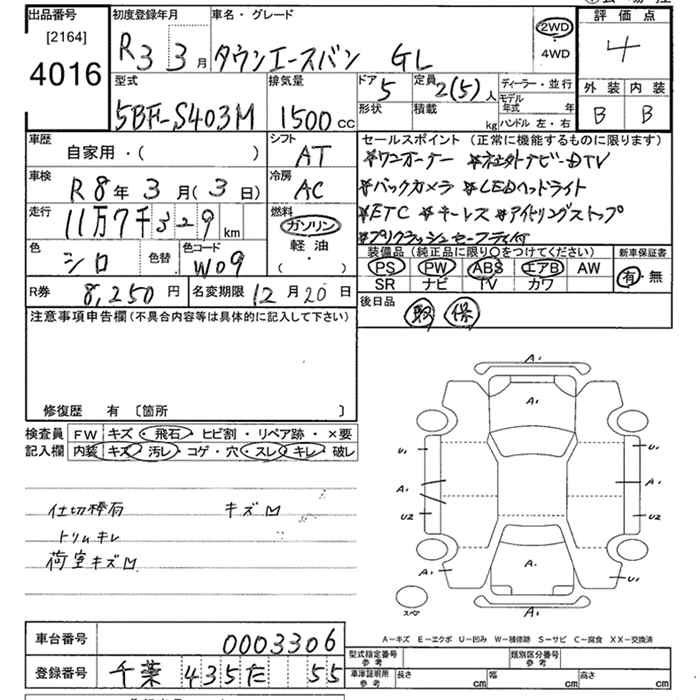 出品番号
[2164]
4016
初度登録年月
R3 3月
車名・グレード
タウンエースバン GL
2WD
4WD
評価点
4
外装 内装
B B
型式
5BF-S403M
排気量
1500 cc
ドア
5
形状
定員
2(5)人
積載
kg
ディーラー・並行
モデル年式 年
ハンドル 左・右
車歴
自家用・( )
シフト
AT
車検
R8年3月(3日)
冷房
AC
走行
11万7千329km
燃料
ガソリン
軽油
・( )
色
シロ
色替
色コード
W09
R券
8,250円
名変期限
12月20日
セールスポイント (正常に機能するものに限ります)
☆ワンオーナー ☆社外ナビ-DTV
☆バックカメラ ☆LEDヘッドライト
☆ETC ☆キーレス ☆アイドリングストップ
☆プリクラッシュセーフティ付
装備品(純正品に限り○をつけてください)
PS PW ABS エアB AW
SR ナビ TV カワ
新車保証書
有・無
後日品
取 保
注意事項申告欄(不具合内容等は具体的に記入して下さい)
修復歴 有 〔箇所 〕
検査員記入欄
FW キズ・飛石・ヒビ割・リペア跡・×要
内装 キズ・汚レ・コゲ・穴・スレ・キレ・破レ
仕切棒右 キズM
トリムキレ
荷室キズM
A1
A1
U1
U1
A1
A1
U2
U2
A1
A1
U1
A1
スペア
A-キズ E-エクボ U-凹み W-補修跡 S-サビ C-腐食 XX-交換済
車台番号
0003306
登録番号
千葉 435 た 55
型式指定番号 参考
類別区分番号 参考
車庫証明所 参考
長さ cm
幅 cm
高さ cm